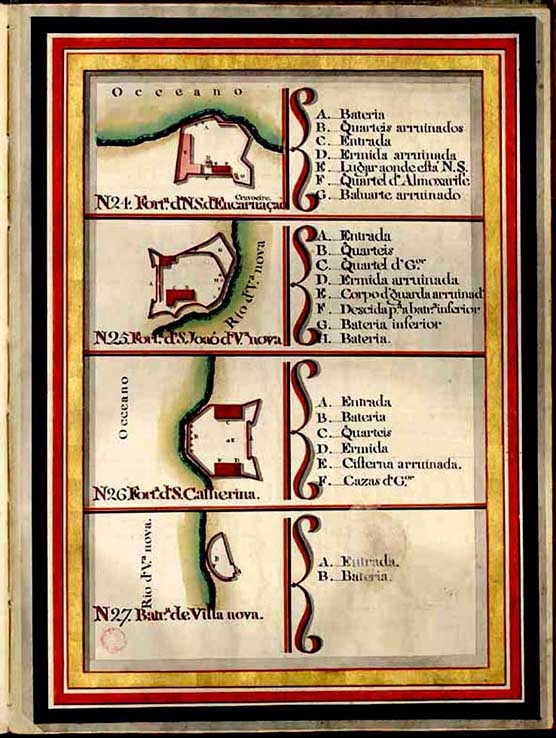 Occeano
A. Bateria
B. Quarteis arruinados
C. Entrada
D. Ermida arruinada
E. Lugar aonde está N.S.
F. Quartel d'Almoxarife
G. Baluarte arruinado
Cravoeiro.
N24. Fort.ª d'N.S. d'Encarnaçaó
Rio d'V.ª nova
A. Entrada
B. Quarteis
C. Quartel d'G.or
D. Ermida arruinada
E. Corpo d'guarda arruinad
F. Descida p.ª batr.ª inferior
G. Bateria inferior
H. Bateria.
N25. Fort.ª d'S. Joaó d'V.ª nova
Occeano
A. Entrada
B. Bateria
C. Quarteis
D. Ermida
E. Cisterna arruinada.
F. Cazas d'G.or
N26. Fort.ª d'S. Catherina.
Rio d'V.ª nova.
A. Entrada.
B. Bateria.
N27. Batr.ª de Villa nova.